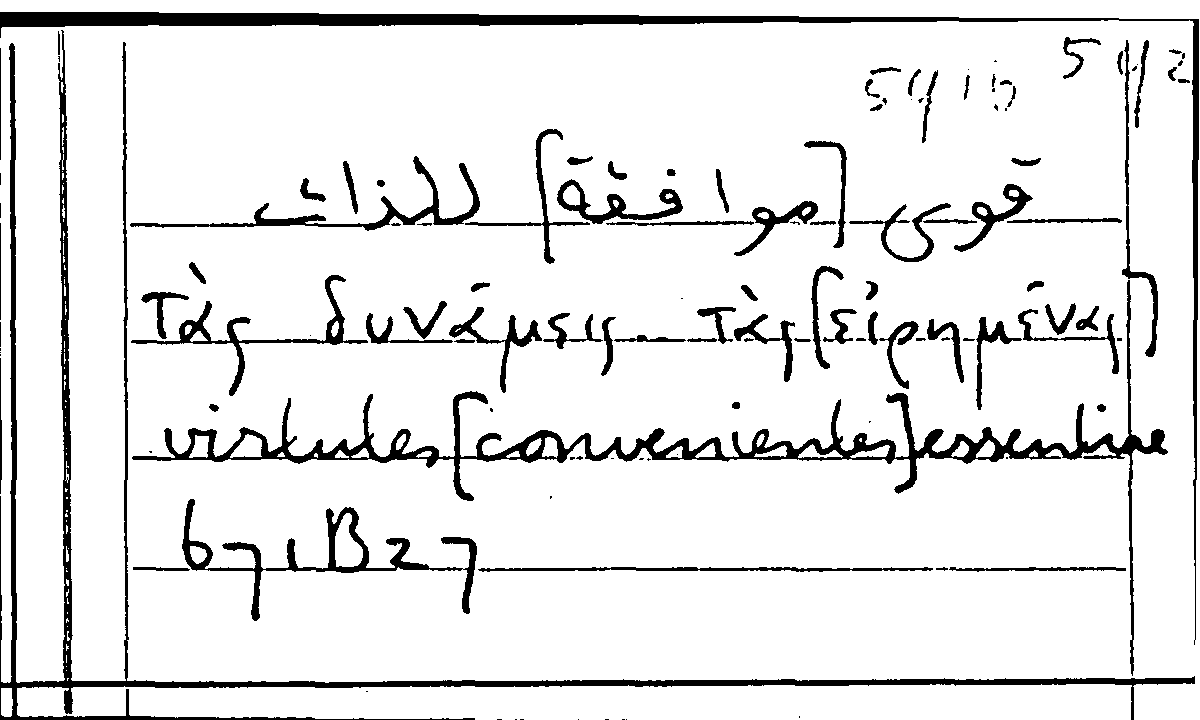 542
541b
قوى [موافقة] للذات
τὰς δυνάμεις.. τὰς [εἰρημένας]
virtutes [convenientes] essentiae
671B27